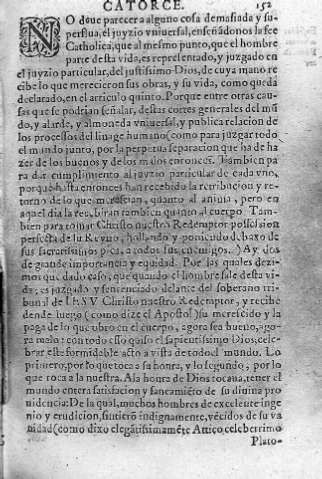 CATORCE. 152
NO deue parecer a alguno cosa demasiada y su-
perflua, el juyzio vniuersal, enseñãdonos la fee
Catholica, que al mesmo punto, que el hombre
parte desta vida, es representado, y juzgado en
el juyzio particular, del justissimo Dios, de cuya mano re
cibe lo que merecieron sus obras, y su vida, como queda
declarado, en el articulo quinto. Porque entre otras cau-
sas que se podrian señalar, destas cortes generales del mũ
do, y alarde, y almoneda vniuersal, y publica relacion de
los processos del linage humano (como para juzgar todo
el mundo junto, por la perpetua separacion que ha de ha
zer de los buenos y de los malos entonces. Tambien pa
ra dar cumplimiento al juyzio particular de cada vno,
porque hasta entonces han recebido la retribucion y re-
torno de lo que merescian, quanto al anima, pero en
aquel dia la rescibiran tambien quanto al cuerpo. Tam
bien para tomar Christo nuestro Redemptor possession
perfecta de su Reyno, hollando y poniendo debaxo de
sus sacratissimos pies, a todos sus enemigos.) Ay dos
de grande importancia y equidad. Por las quales dezi-
mos que dado caso, que quando el hombre sale desta vi
da, es juzgado y sentenciado delante del soberano tri-
bunal de IESV Christo nuestro Redemptor, y recibe
dende luego (como dize el Apostol) su merescido y la
paga de lo que obro en el cuerpo, agora sea bueno, ago-
ra malo: con todo esso quiso el sapientissimo Dios, cele-
brar este formidable acto a vista de todo el mundo. Lo
primero, por lo que toca a su honra, y lo segundo, por lo
que toca a la nuestra. A la honra de Dios tocaua, tener el
mundo entera satisfacion y saneamiẽto de su diuina pro
uidencia: De la qual, muchos hombres de excelente inge
nio y erudicion, sintierõ indignamente, vẽcidos de su va
nidad (como dixo elegãtissimamẽte Attico, celeberrimo
Plato-